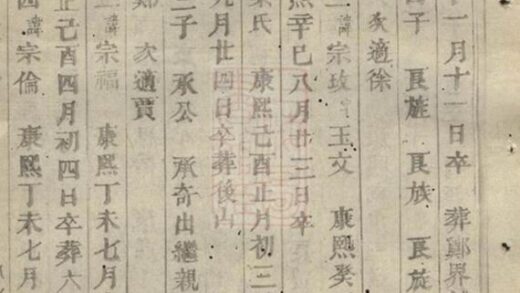 十一月十一日卒 葬鄭界
子 良旌 良族 良旋
次適徐
諱宗玫字玉文 康熙癸
熙辛巳八月廿三日卒
葉氏 康熙己酉正月初三
九月廿四日卒葬後山
二子 承公 承奇出繼親
鄭 次適賈
諱宗福 康熙丁未七月
正己酉四月初四日卒葬六
四 諱宗倫 康熙丁未七月